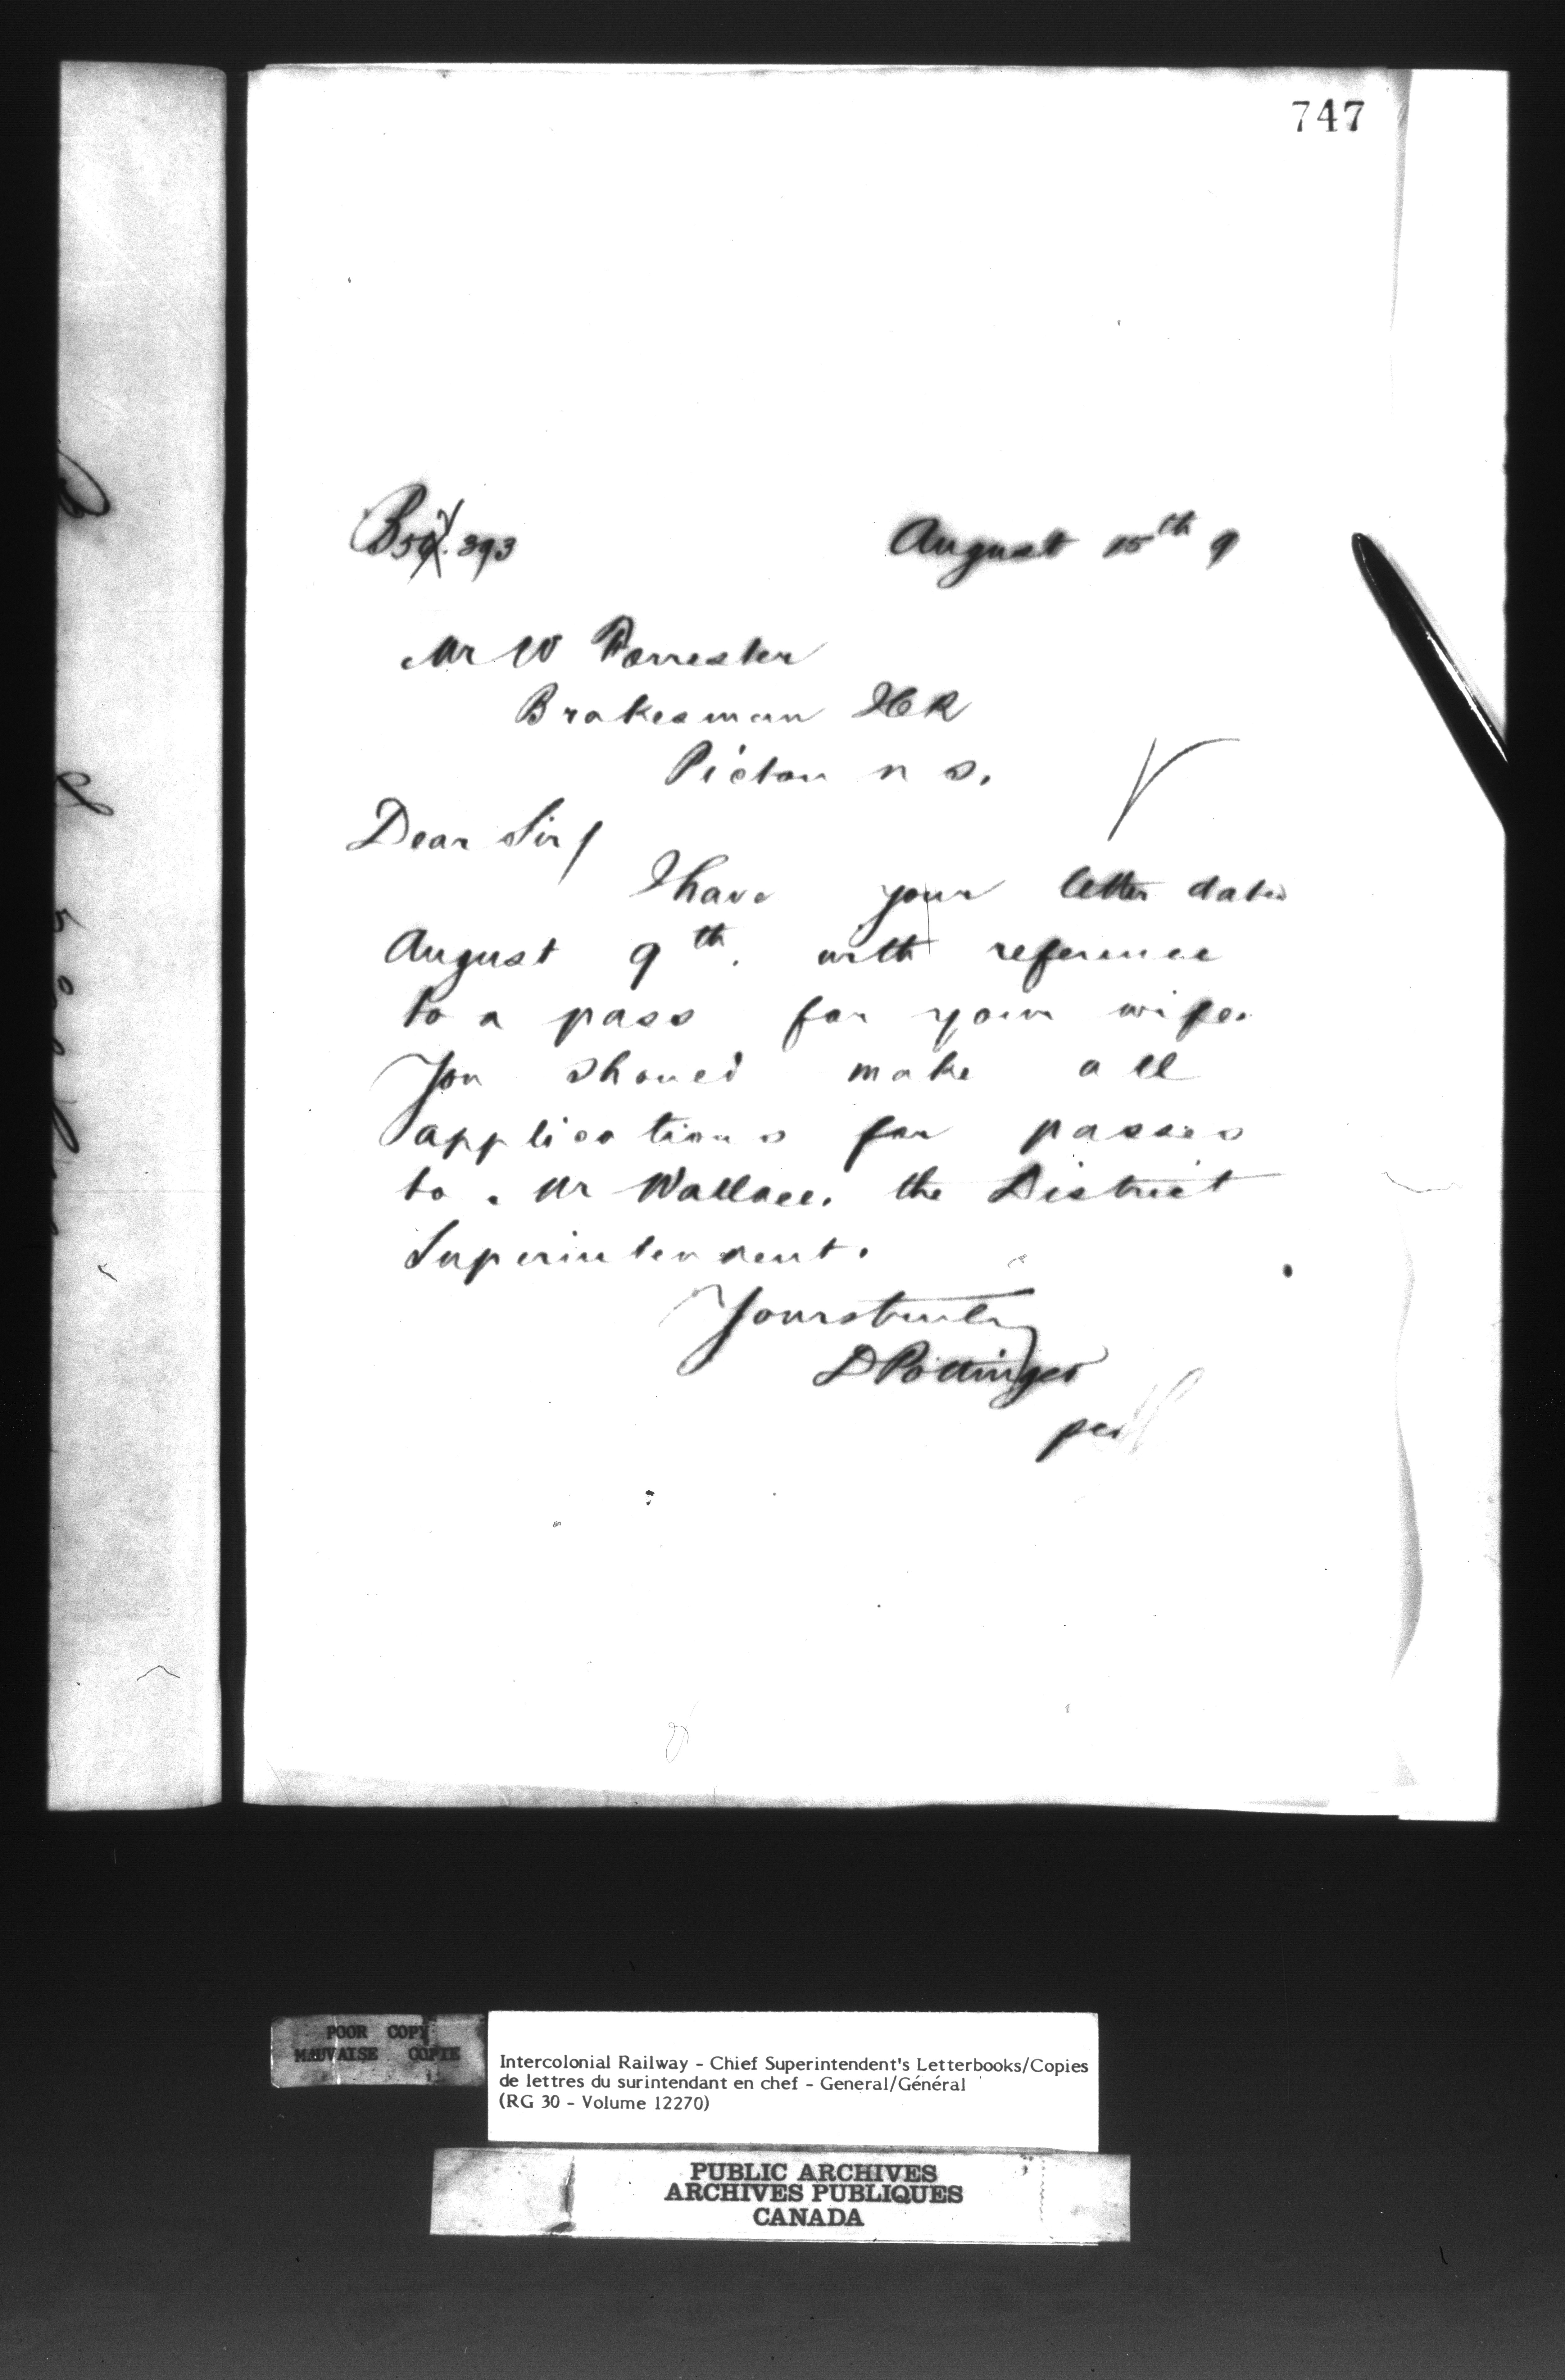 747
B59. 393
August 15th 9
Mr W Forrester
Brakesman ICR
Pictou n s.
Dear Sir/
I have your letter dated
August 9th. with reference
to a pass for your wife.
You should make all
applications for passes
to . Mr Wallace. the District
Superintendent.
Yours truly
D Pottinger
per
POOR COPY
MAUVAISE COPIE
Intercolonial Railway - Chief Superintendent's Letterbooks/Copies
de lettres du surintendant en chef - General/Général
(RG 30 - Volume 12270)
PUBLIC ARCHIVES
ARCHIVES PUBLIQUES
CANADA